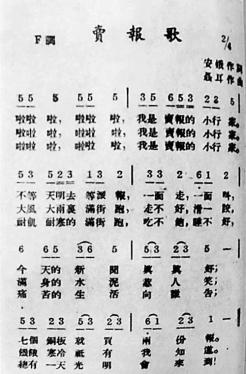 F調 賣報歌 2/4
安娥作詞
聶耳作曲
5 5 5 5 5 | 3 5 6 5 3 2 2 5
啦啦 啦, 啦啦 啦, 我是 賣報的 小行 家。
啦啦 啦, 啦啦 啦, 我是 賣報的 小行 家。
啦啦 啦, 啦啦 啦, 我是 賣報的 小行 家。
5 3 5 2 3 1 3 2 | 3 3 2 6 1 2
不等 天明去 等派 報, 一面 走,一面 叫,
大風 大雨裏 滿街 跑, 走不 好,滑一 跤,
耐飢 耐寒的 滿街 跑, 吃不 飽,睡不 好,
6 6 5 3 6 5 | 5 3 2 3 5 —
今 天的 新 聞 真 真 好;
滿 身的 水 泥 惹 人 笑;
痛 苦的 生 活 向 誰 告;
5 3 2 3 5 3 2 3 | 6 1 2 3 1 —
七個 銅板 就 買 兩 份 報。
飢餓 寒冷 只 有 我 知 道。
總有 一天 光 明 會 來 到!